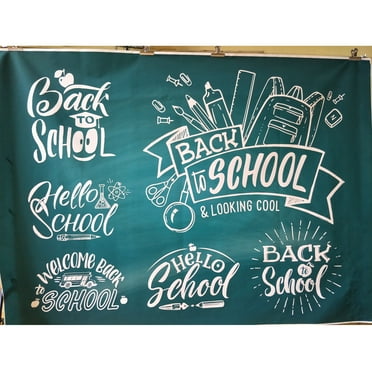 Back
TO
SCHOOL
BACK
to SCHOOL
& LOOKING COOL
Hello
SCHOOL
WELCOME BACK
to SCHOOL
HELLO
School
BACK
to
School